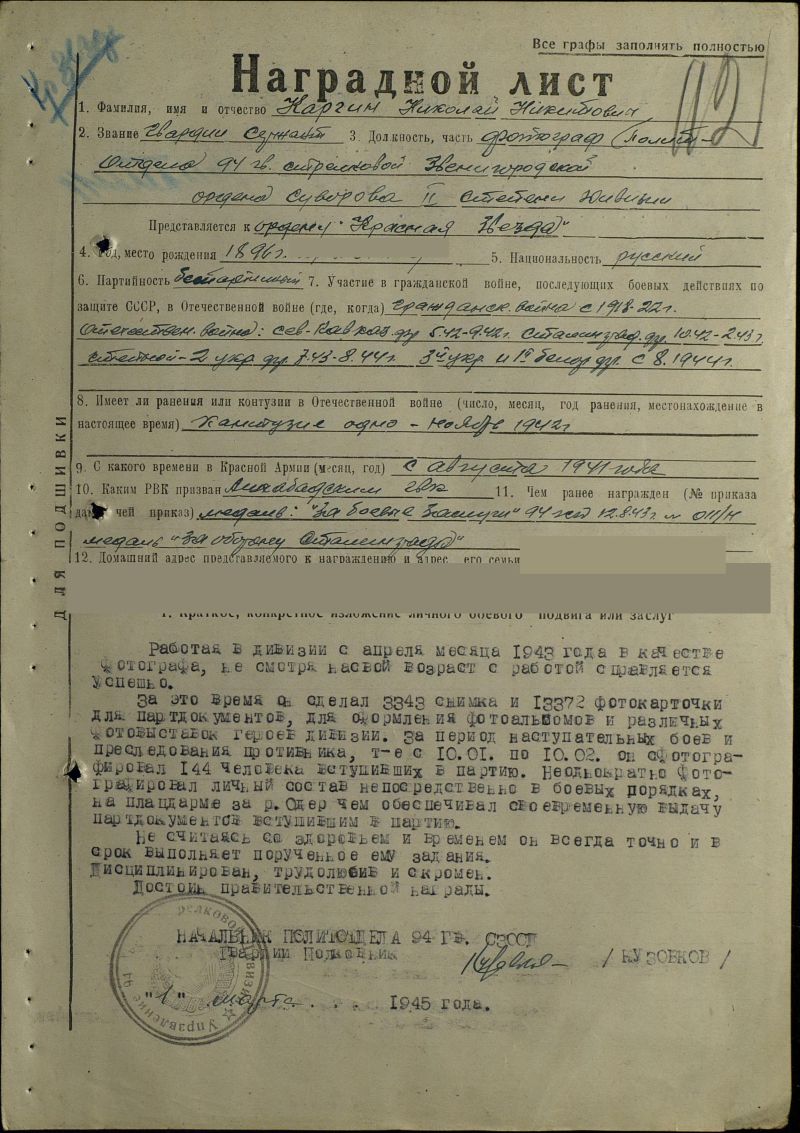 Все графы заполнять полностью
Наградной лист
1. Фамилия, имя и отчество Каргин Николай Никитович
2. Звание Гвардии Сержант 3. Должность, часть фотограф (Полит-
Отдела 94 гв. стрелковой Звенигородской
ордена Суворова II степени дивизии
Представляется к ордену "Красная Звезда"
4. Год, место рождения 1896г. 5. Национальность русский
6. Партийность беспартийный 7. Участие в гражданской войне, последующих боевых действиях по
защите СССР, в Отечественной войне (где, когда) Гражданск. война с 1918-22г.
Отечествен. война: сев-Кавказ. фр 5.42-9.42г. Сталинград. фр. 10.42-2.43г.
степной-2 укр фр. 7.43-8.44г. 3й укр и 1й белор фр. с 8.1944г.
8. Имеет ли ранения или контузии в Отечественной войне (число, месяц, год ранения, местонахождение в
настоящее время) Контузия одно - Ноябрь 1942г
9. С какого времени в Красной Армии (месяц, год) с августа 1941 года
10. Каким РВК призван гвк 11. Чем ранее награжден (№ приказа
дата, чей приказ) медаль: "За боевые Заслуги" 94 гсд 12.8.43г. № 011/Н
медаль "За оборону Сталинграда"
12. Домашний адрес представляемого к награждению и адрес его семьи
1. Краткое, конкретное изложение личного боевого подвига или заслуг
Работая в дивизии с апреля месяца 1943 года в качестве
фотографа, не смотря насвой возраст с работой справляется
успешно.
За это время он сделал 3343 снимка и 13372 фотокарточки
для партдокументов, для оформления фотоальбомов и различных
фотовыставок героев дивизии. За период наступательных боев и
преследования противника, т-е с 10.01. по 10.02. он сфотогра-
фировал 144 человека вступивших в партию. Неоднократно фото-
графировал личный состав непосредственно в боевых порядках,
на плацдарме за р.Одер чем обеспечивал своевременную выдачу
партдокументов вступившим в партию.
Не считаясь со здоровьем и временем он всегда точно и в
срок выполняет порученное ему задания.
Дисциплинирован, трудолюбив и скромен.
Достоин правительственной награды.
НАЧАЛЬНИК ПОЛИТОТДЕЛА 94 ГВ. СЗОСД
Гвардии Полковник / КУЗОВКОВ /
"1" марта . . . 1945 года.
ДЛЯ ПОДШИВКИ
Управление 94